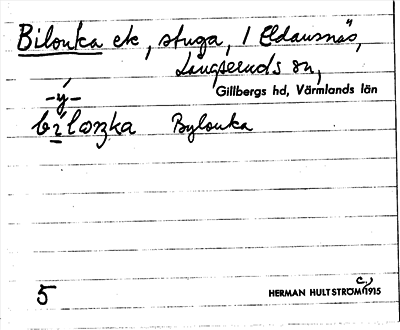 Bilonka etc, stuga, 1 Eldansnäs,
Långseruds sn,
Gillbergs hd, Värmlands län
-ý-
bilonka Bylonka
5
HERMAN HULTSTRÖM c. 1915